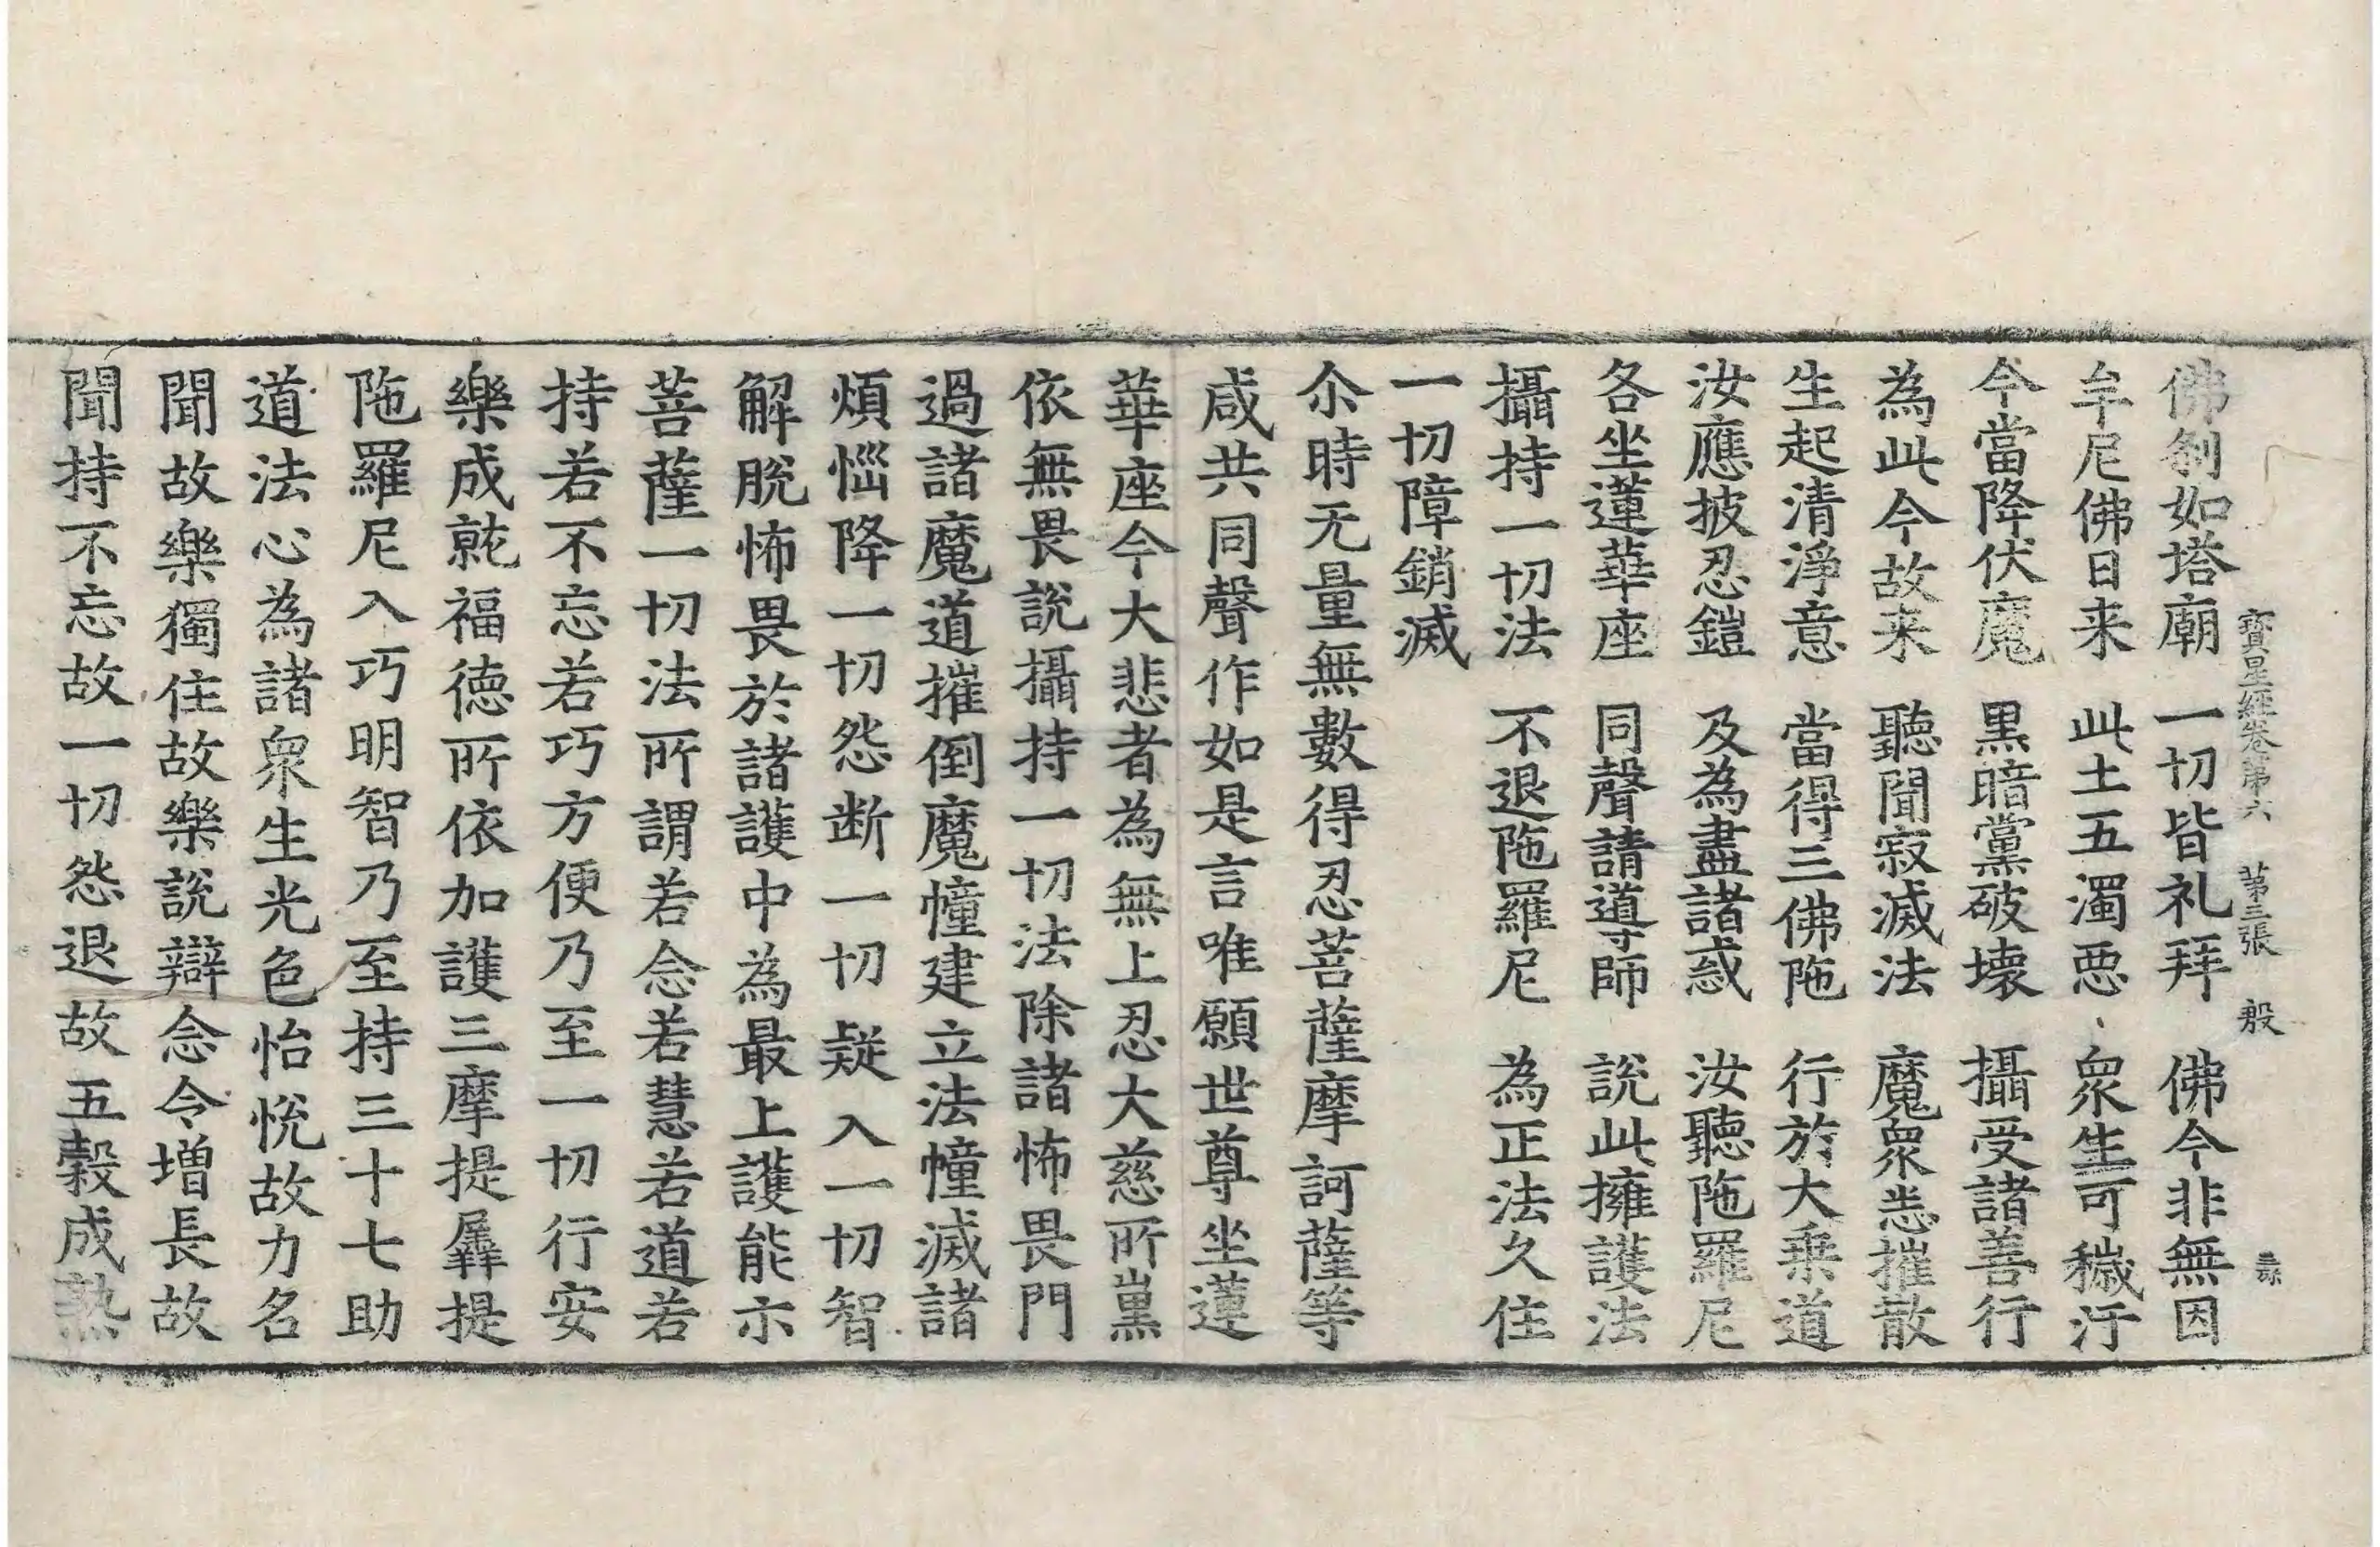 寶星經卷第六　第三張　殷
佛刹如塔廟　一切皆礼拜　佛今非無因
牟尼佛日来　此土五濁惡　衆生可穢汙
今當降伏魔　黒暗黨破壊　攝受諸善行
為此今故来　聽聞寂滅法　魔衆恙摧散
生起清淨意　當得三佛陁　行於大乗道
汝應披忍鎧　及為盡諸惑　汝聽陁羅尼
各坐蓮華座　同聲請導師　説此擁護法
攝持一切法　不退陁羅尼　為正法久住
一切障銷滅
尒時无量無數得忍菩薩摩訶薩等
咸共同聲作如是言唯願世尊坐蓮
華座今大悲者為無上忍大慈所熏
依無畏說攝持一切法除諸怖畏門
過諸魔道摧倒魔幢建立法幢滅諸
煩惱降一切怨断一切疑入一切智
解脫怖畏於諸護中為最上護能示
菩薩一切法所謂若念若慧若道若
持若不忘若巧方便乃至一切行安
樂成就福德所依加護三摩提羼提
陁羅尼入巧明智乃至持三十七助
道法心為諸衆生光色怡悅故力名
聞故樂獨住故樂說辯念令増長故
聞持不忘故一切怨退故五穀成熟